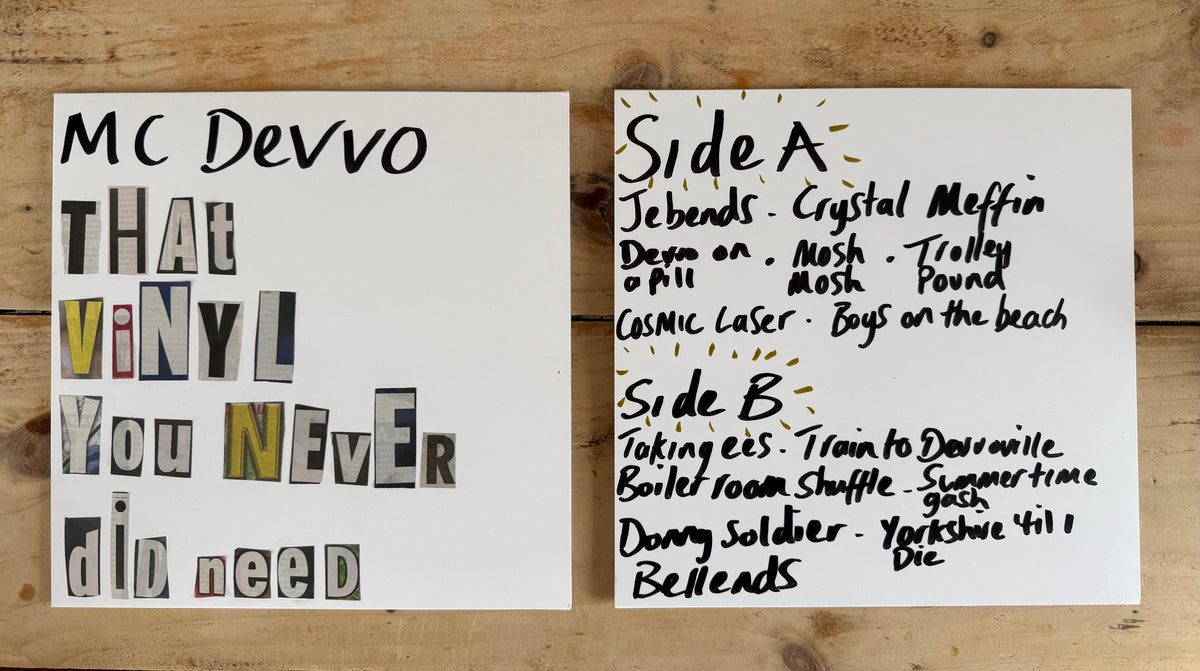 MC Devvo
THAt
ViNYL
You NEvER
diD neeD
Side A
Jebends - Crystal Meffin
Devvo on a pill . Mosh Mosh . Trolley Pound
Cosmic Laser . Boys on the beach
Side B
Taking ees . Train to Devvoville
Boiler room shuffle - Summertime gash
Donny Soldier - Yorkshire 'til I Die
Bellends